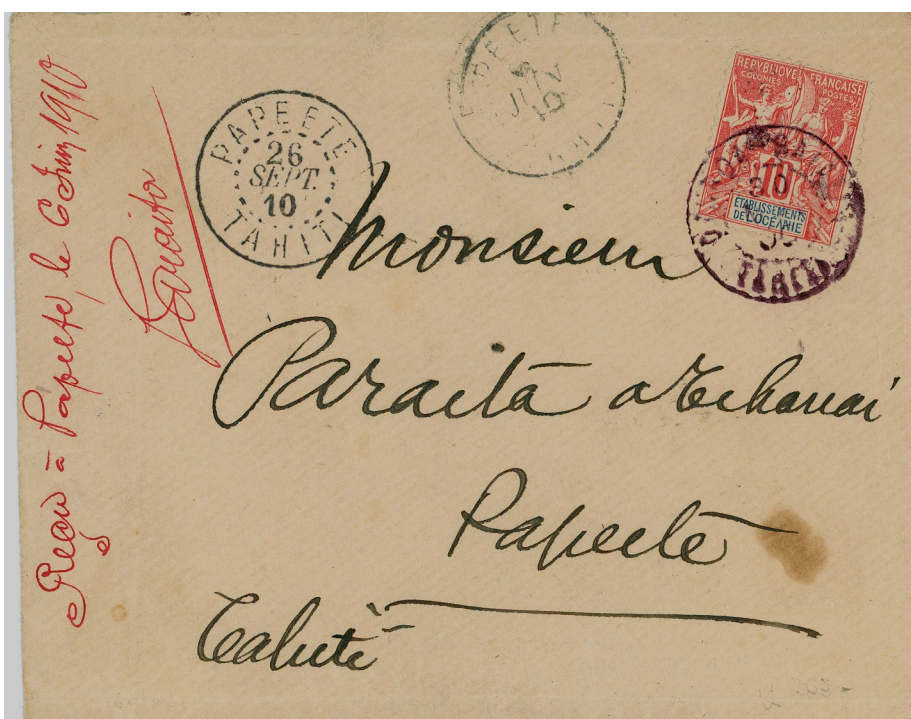 Reçu à Papeete, le 6 Juin 1910
Paraita
PAPEETE
26
SEPT.
10
TAHITI
PAPEETE
JUIN
10
REPUBLIQUE FRANÇAISE
COLONIES
POSTES
10
ETABLISSEMENTS
DE L'OCÉANIE
TAHITI
Monsieur
Paraita a Tehanai
Papeete
Tahiti